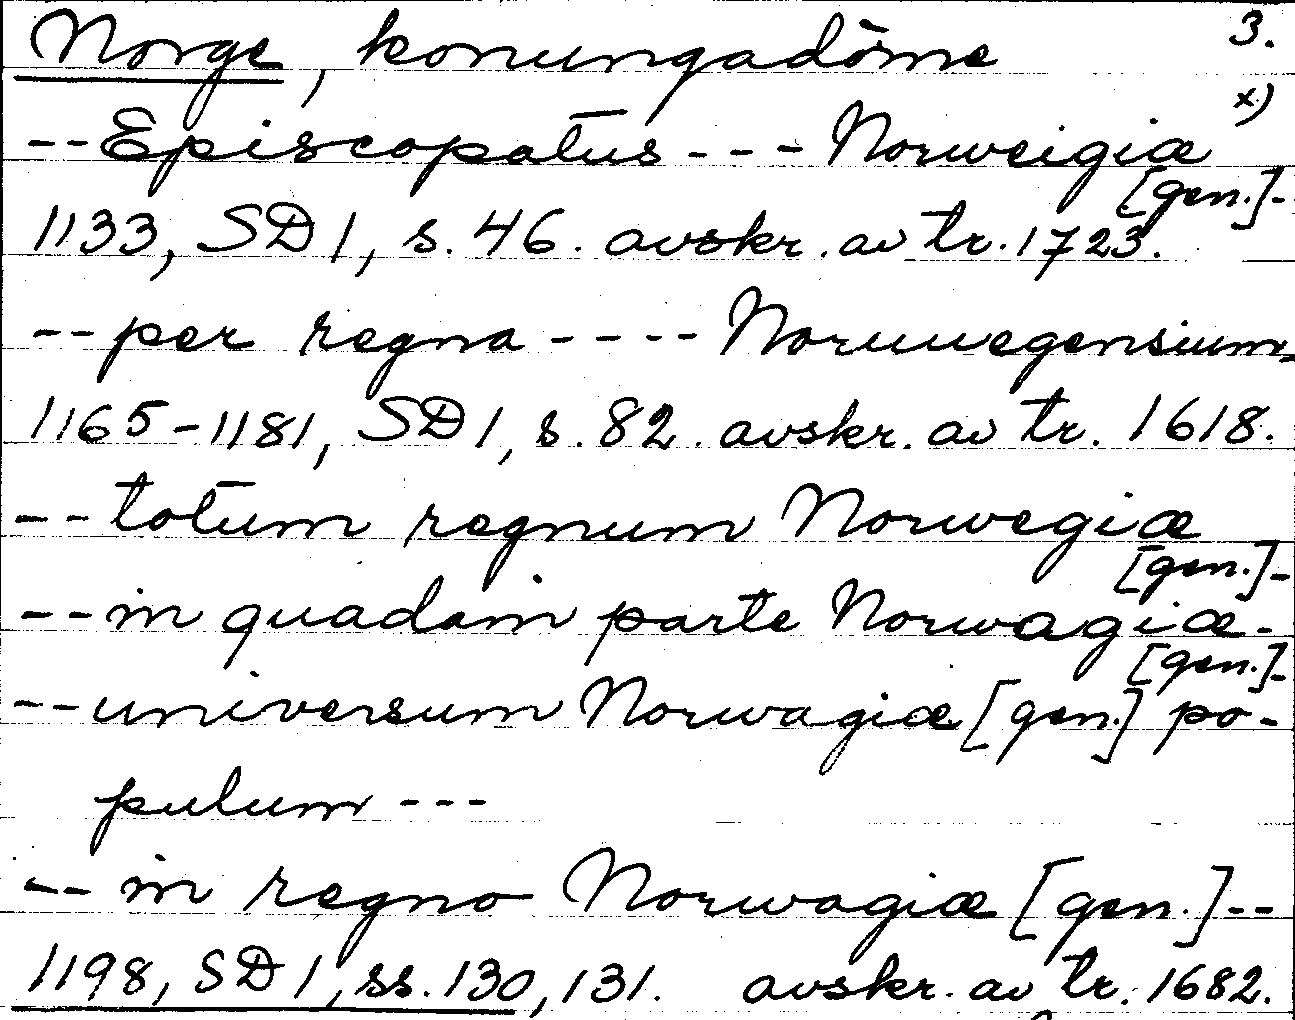 Norge, konungadöme 3.
--Episcopatus --- Norweigiæ x)
[gen.]-
1133, SD 1, s. 46. avskr. av tr. 1723.
--per regna ---- Noruuegensium-
1165-1181, SD 1, s. 82. avskr. av tr. 1618.
--totum regnum Norwegiæ
[gen.]-
--in quadam parte Norwagiæ-
[gen.]-
--universum Norwagiæ [gen.] po-
pulum ---
-- in regno Norwagiæ [gen.]--
1198, SD 1, ss. 130, 131. avskr. av tr. 1682.